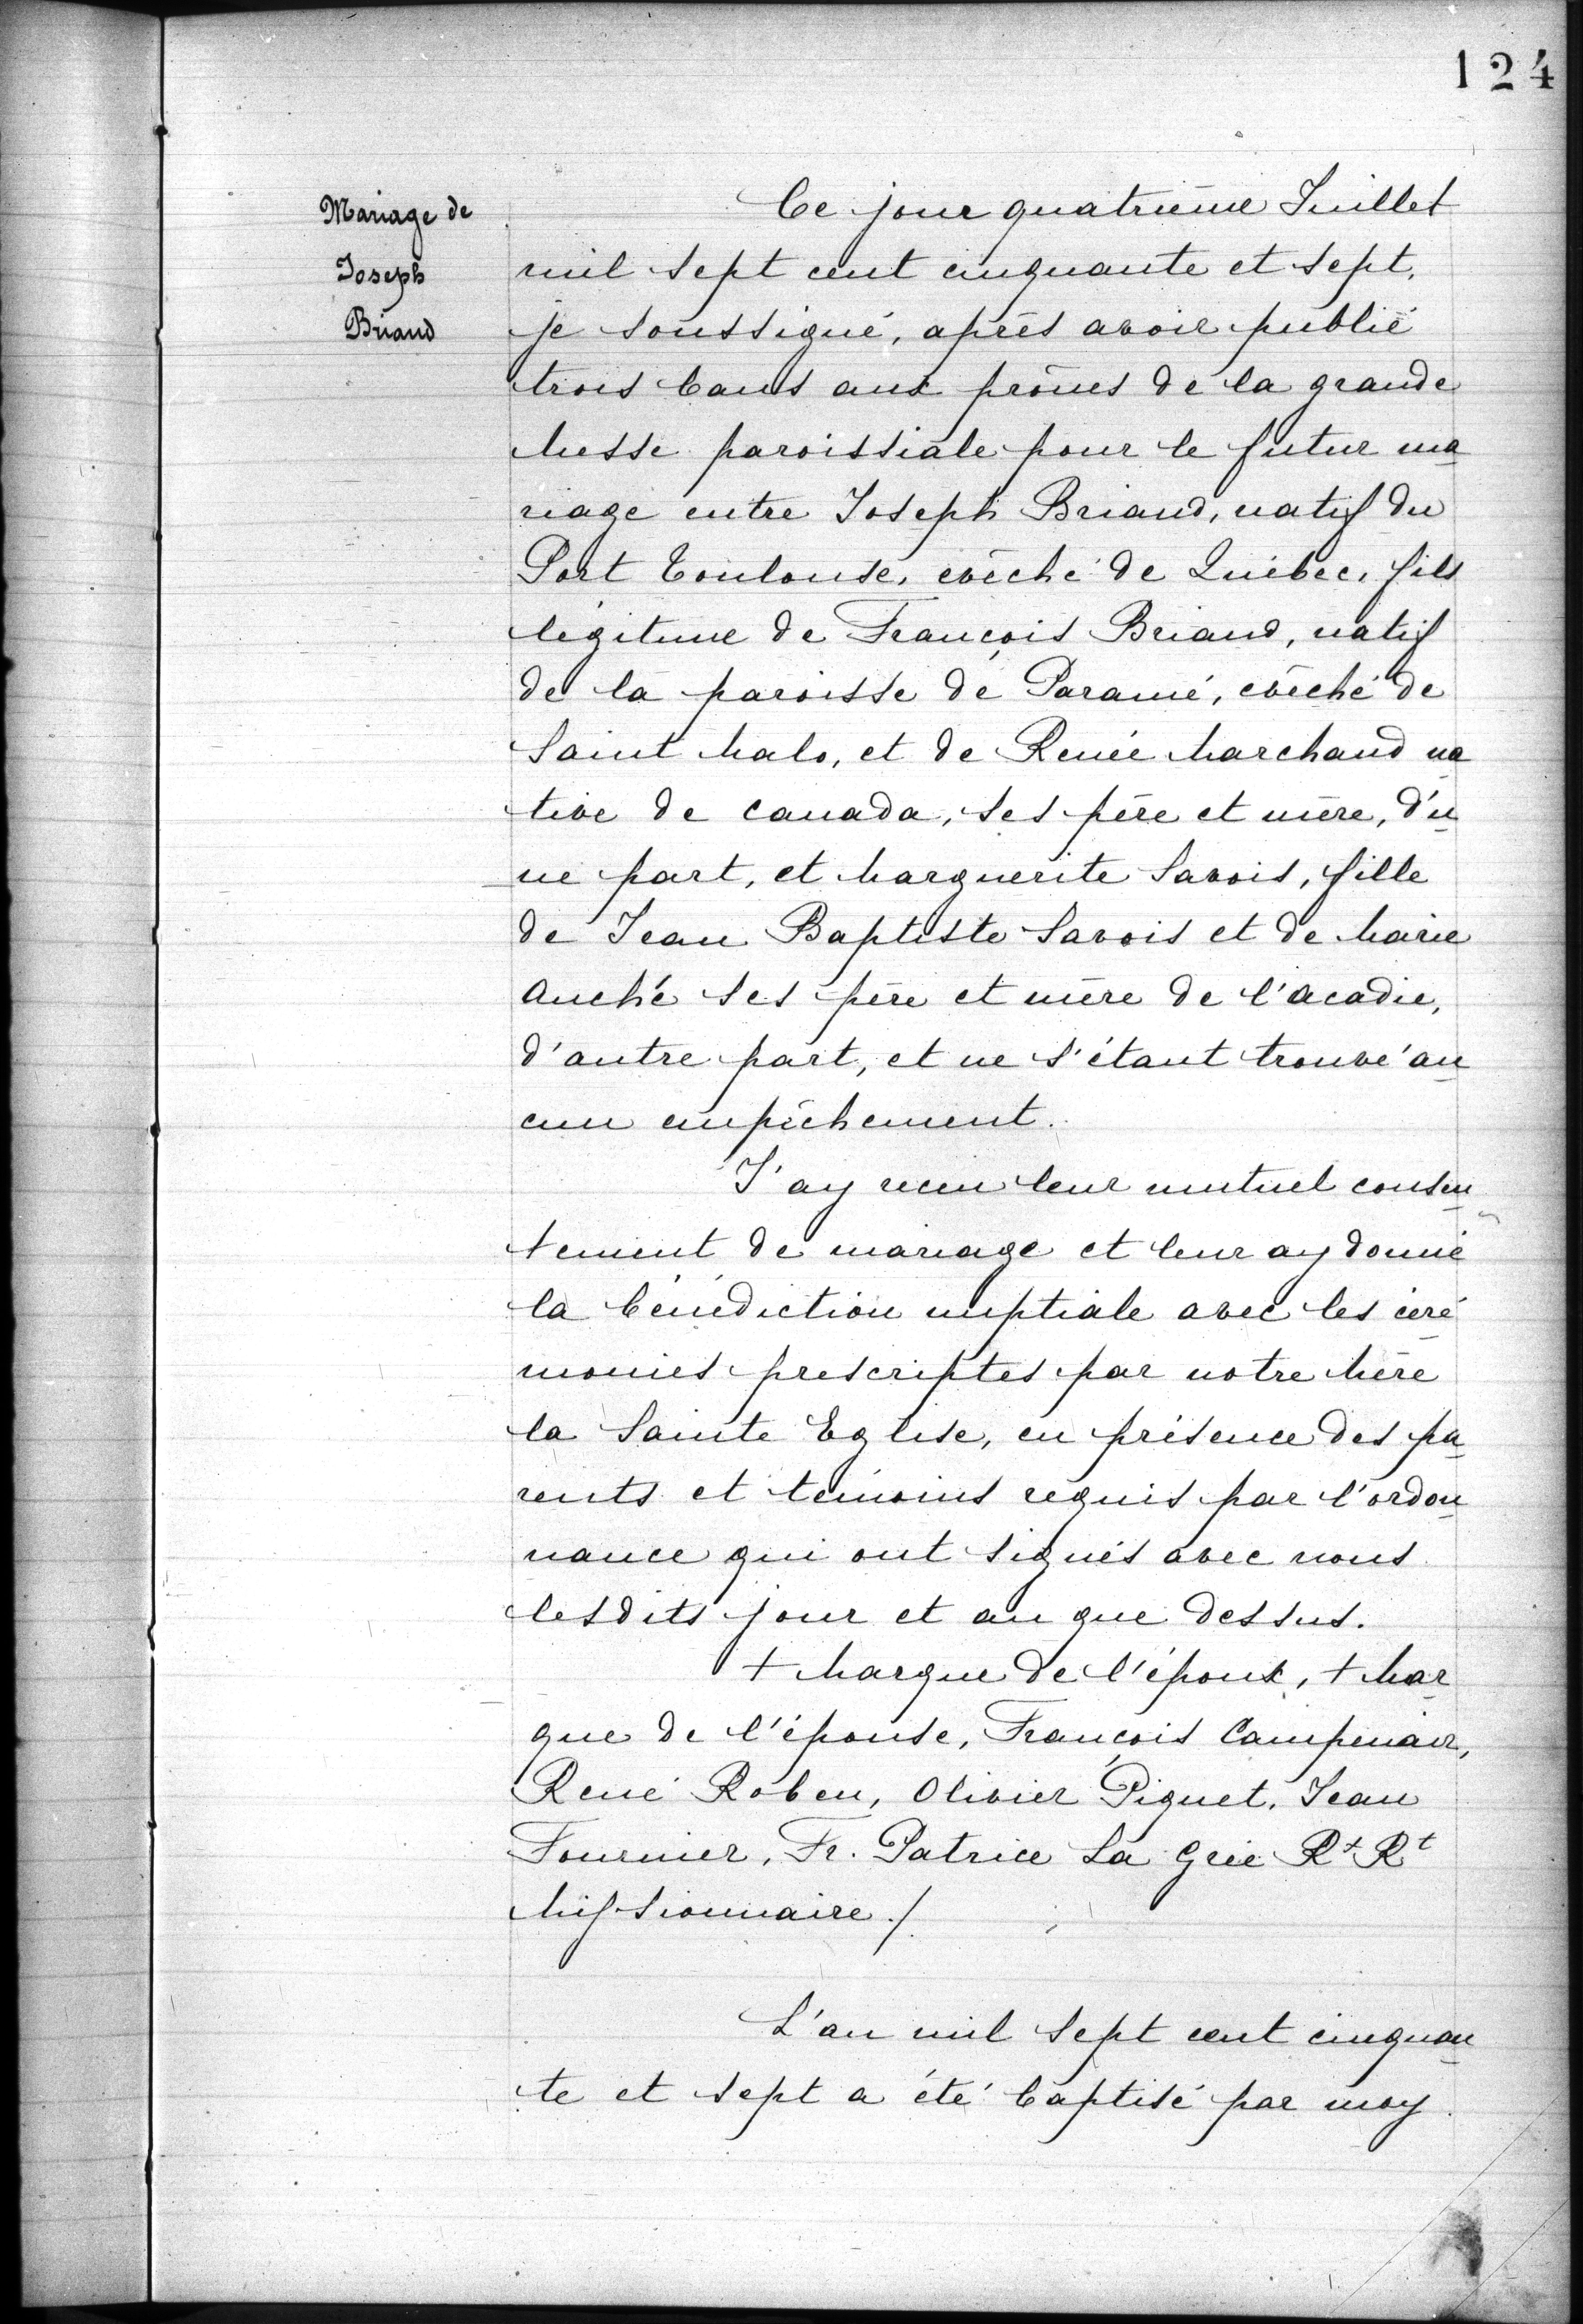 124
Mariage de
Joseph
Briand
Ce jour quatrième Juillet
mil sept cent cinquante et sept,
je soussigné, après avoir publié
trois bans aux prônes de la grande
Messe paroissiale pour le futur ma
riage entre Joseph Briand, natif du
Port Toulouse, evêché de Québec, fils
légitime de François Briand, natif
de la paroisse de Paramé, evêché de
Saint Malo, et de Renée Marchand na
tive de Canada, ses père et mère, d'u
ne part, et Marguerite Savois, fille
de Jean Baptiste Savois et de Marie
Auché ses père et mère de l'Acadie,
d'autre part, et ne s'étant trouvé au
cun empêchement.
J'ay receu leur mutuel consen
tement de mariage et leur ay donné
la bénédiction nuptiale avec les céré
monies prescriptes par notre Mère
la Sainte Eglise, en présence des pa
rents et témoins requis par l'ordon
nance qui ont signés avec nous
lesdits jour et an que dessus.
+ Marque de l'époux, + Mar
que de l'épouse, François Campenair,
René Roben, Olivier Piquet, Jean
Fournier, Fr. Patrice La Grée Rt Rt
Missionnaire ./.
L'an mil sept cent cinquan
te et sept a été baptisé par moy